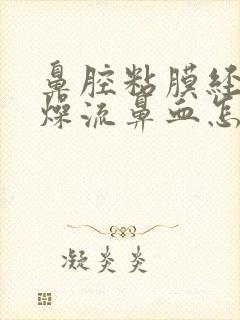 鼻腔粘膜经
燥流鼻血怎
凝炎炎